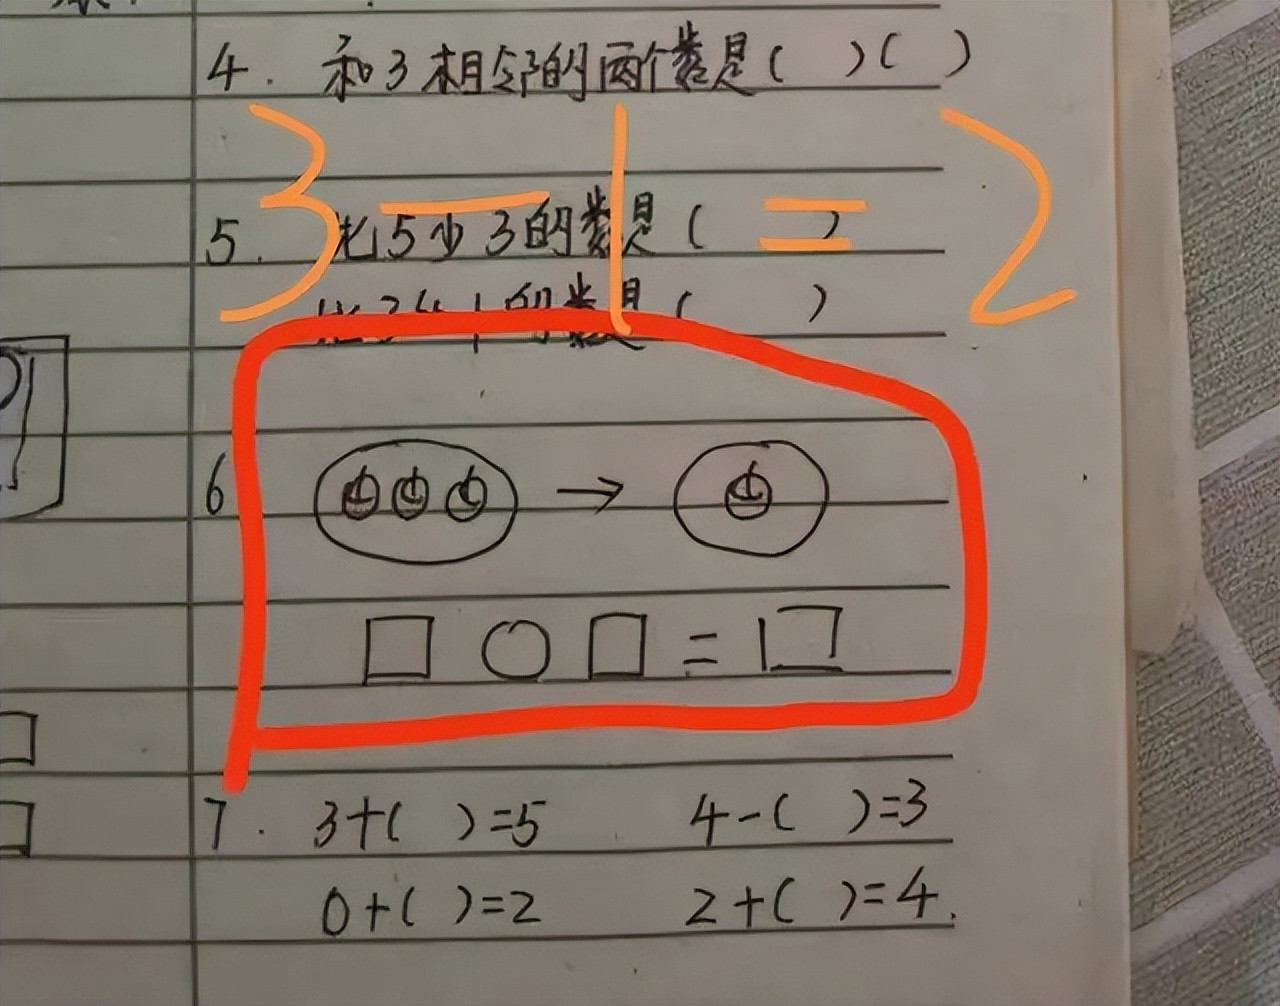 4. 和3相邻的两个数是( )( )
3-1=2
5. 比5少3的数是( )
比3少1的数是( )
6
→
□○□=□
7. 3+( )=5 4-( )=3
0+( )=2 2+( )=4.